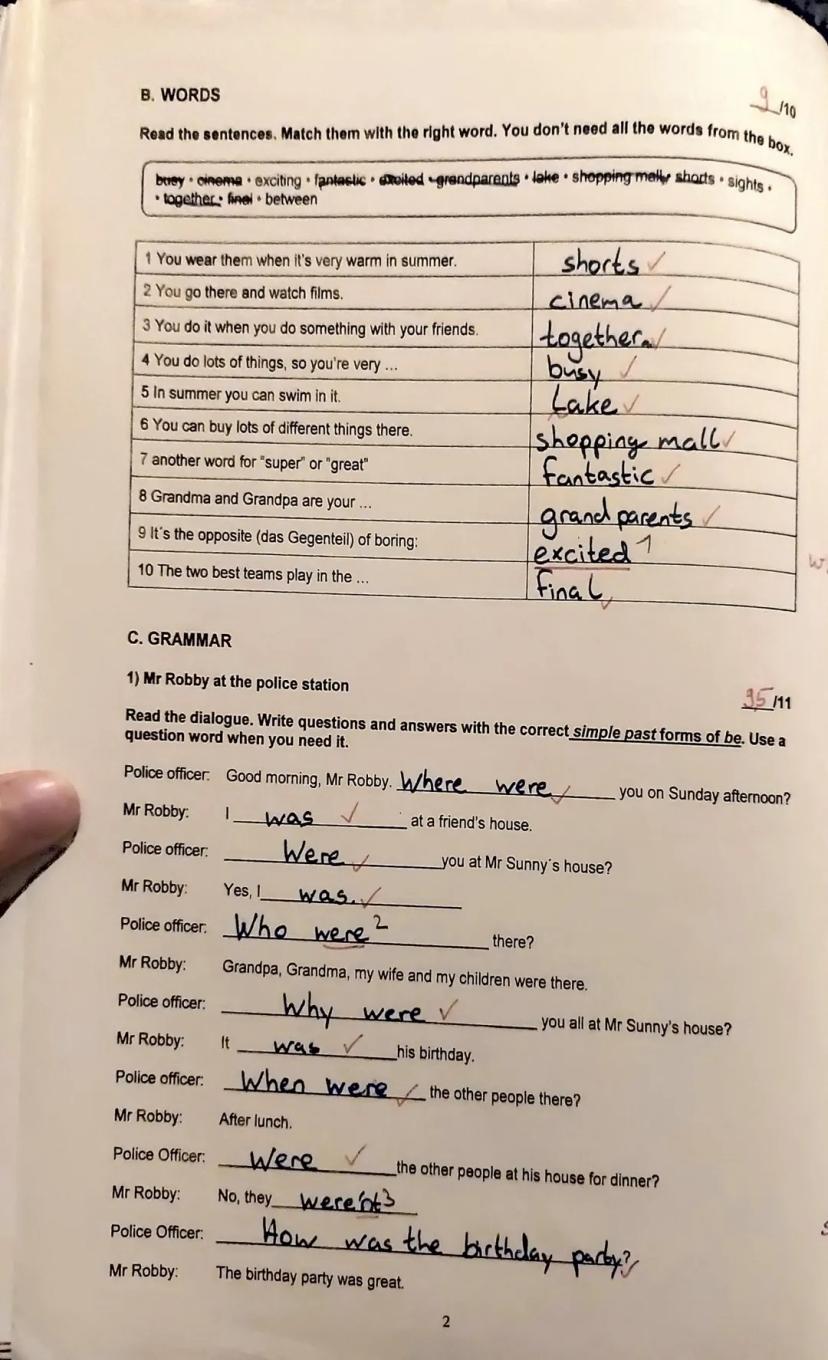 B. WORDS
9/10
Read the sentences. Match them with the right word. You don't need all the words from the box.
busy • cinema • exciting • fantastic • excited • grandparents • lake • shopping mall • shorts • sights •
• together • final • between
1 You wear them when it's very warm in summer. shorts ✓
2 You go there and watch films. cinema ✓
3 You do it when you do something with your friends. together ✓
4 You do lots of things, so you're very ... busy ✓
5 In summer you can swim in it. Lake ✓
6 You can buy lots of different things there. shopping mall ✓
7 another word for "super" or "great" fantastic ✓
8 Grandma and Grandpa are your ... grandparents ✓
9 It's the opposite (das Gegenteil) of boring: excited 1
10 The two best teams play in the ... final ✓
C. GRAMMAR
1) Mr Robby at the police station
95/11
Read the dialogue. Write questions and answers with the correct simple past forms of be. Use a
question word when you need it.
Police officer: Good morning, Mr Robby. Where were ✓ you on Sunday afternoon?
Mr Robby: I was ✓ at a friend's house.
Police officer: Were ✓ you at Mr Sunny's house?
Mr Robby: Yes, I was. ✓
Police officer: Who were 2 there?
Mr Robby: Grandpa, Grandma, my wife and my children were there.
Police officer: Why were ✓ you all at Mr Sunny's house?
Mr Robby: It was ✓ his birthday.
Police officer: When were ✓ the other people there?
Mr Robby: After lunch.
Police Officer: Were ✓ the other people at his house for dinner?
Mr Robby: No, they were'nt 3
Police Officer: How was the birthday party? ✓
Mr Robby: The birthday party was great.
2